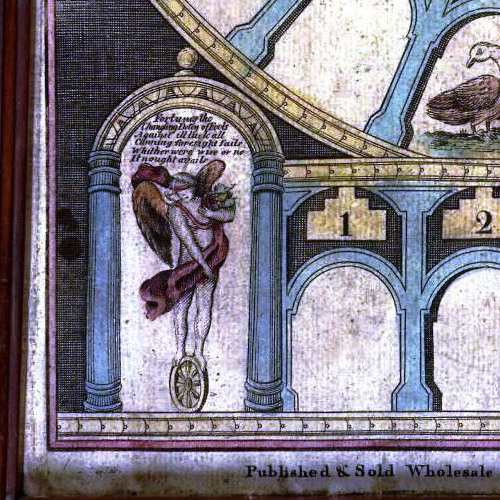 Fortunes the
Changing Deity of Fools
Against ill luck all
Cunning foresight fails
Whither were wise or no
It nought avails
1
2
Published & Sold Wholesale